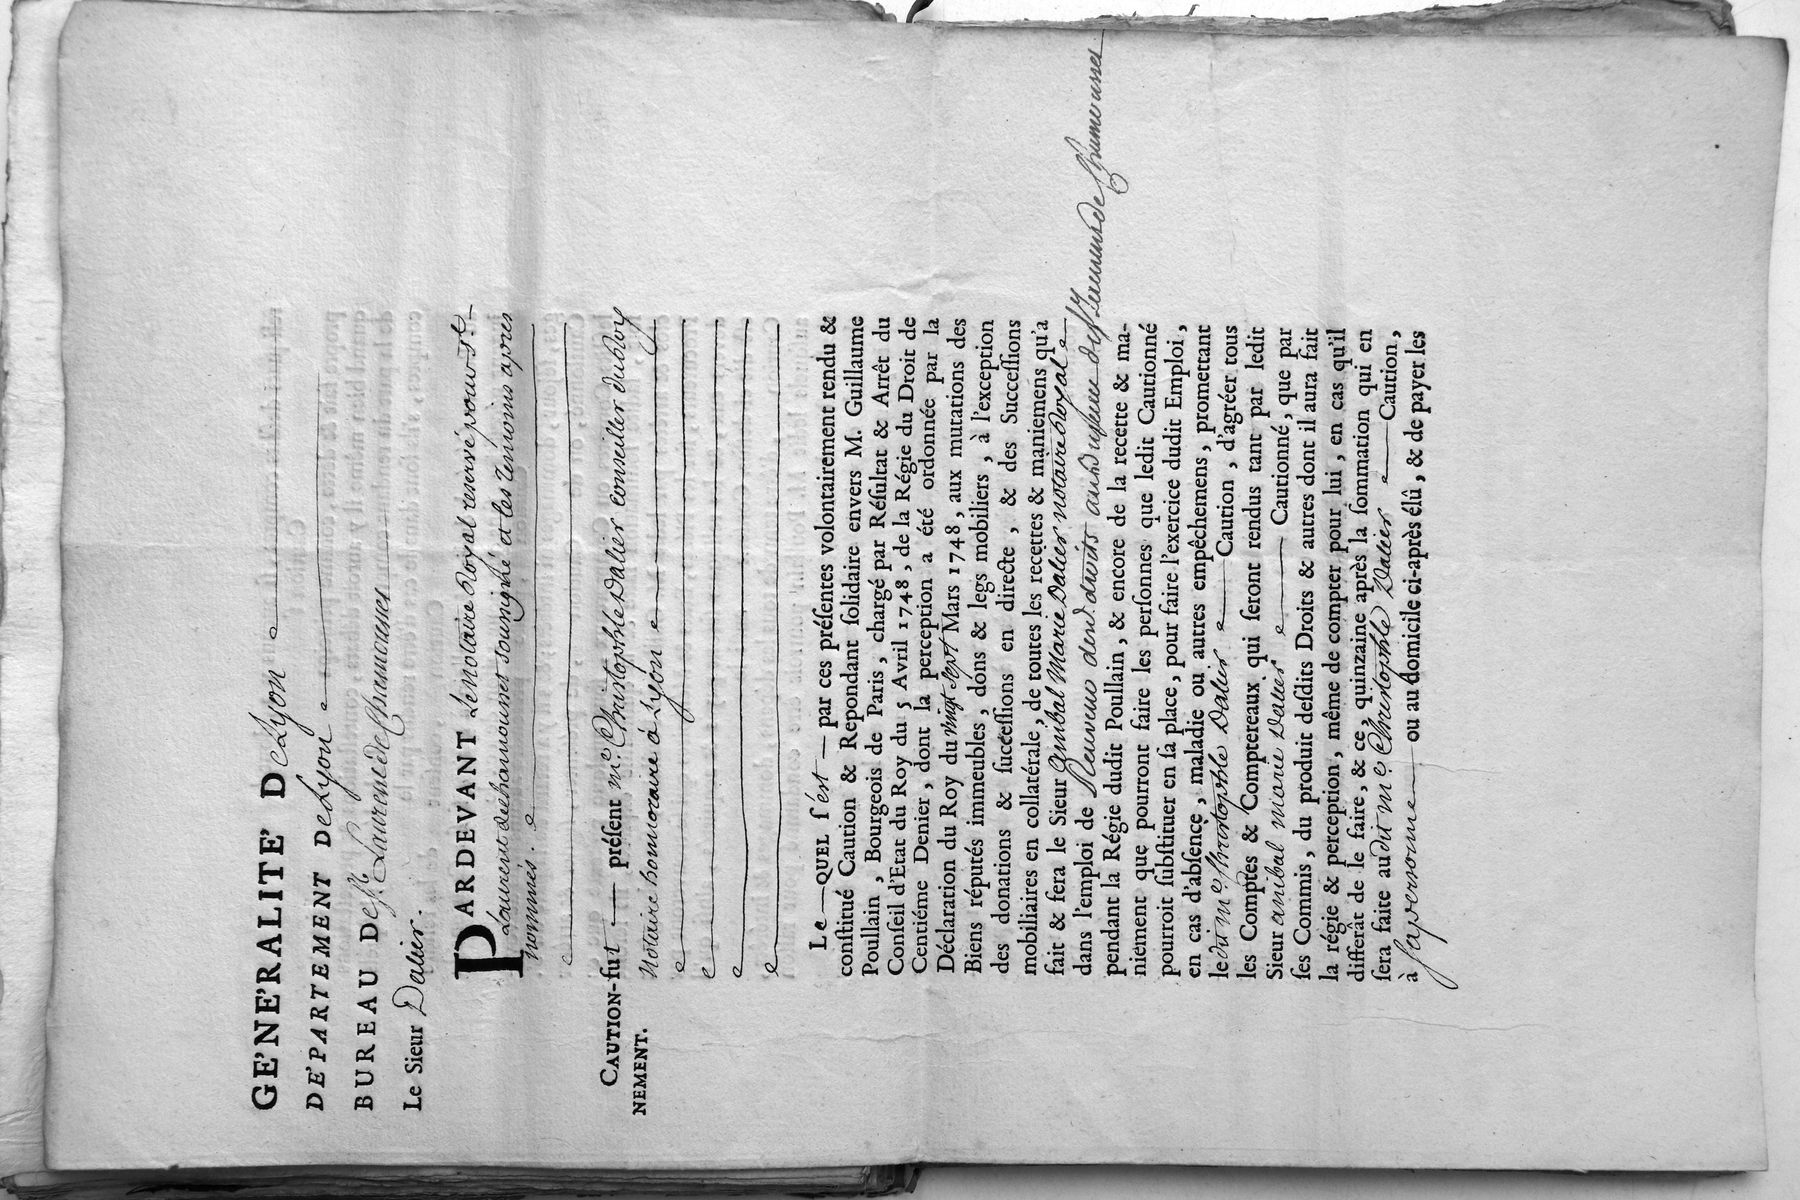 GE'NE'RALITE' De Lyon
DE'PARTEMENT De Lyon
BUREAU De St. Laurent de Chamousses
Le Sieur Dalier.
PARDEVANT Le Notaire Royal reservé pour St.
Laurent de chamousset soussigné et les témoins apres
nommés.
CAUTION- fut — présent Me. Christophle Dalier conseiller du Roy
NEMENT. Notaire honoraire à Lyon
Le — QUEL s'est — par ces présentes volontairement rendu &
constitué Caution & Repondant solidaire envers M. Guillaume
Poullain, Bourgeois de Paris, chargé par Résultat & Arrêt du
Conseil d'Etat du Roy du 5 Avril 1748, de la Régie du Droit de
Centiéme Denier, dont la perception a été ordonnée par la
Déclaration du Roy du vingt sept Mars 1748, aux mutations des
Biens réputés immeubles, dons & legs mobiliers, à l'exception
des donations & successions en directe, & des Successions
mobiliaires en collatérale, de toutes les recettes & maniemens qu'a
fait & fera le Sieur Annibal Marie Dalier notaire Royal
dans l'emploi de Receveur desd. droits au bureau de St. Laurent de Chamousses
pendant la Régie dudit Poullain, & encore de la recette & ma-
niement que pourront faire les personnes que ledit Cautionné
pourroit substituer en sa place, pour faire l'exercice dudit Emploi,
en cas d'absence, maladie ou autres empêchemens, prometant
ledit Me. Christophle Dalier — Caution, d'agréer tous
les Comptes & Comptereaux qui seront rendus tant par ledit
Sieur anibal marie Dalier — Cautionné, que par
ses Commis, du produit desdits Droits & autres dont il aura fait
la régie & perception, même de compter pour lui, en cas qu'il
differât de le faire, & ce, quinzaine après la sommation qui en
sera faite audit Me Christophle Dalier — Caution,
à sa personne — ou au domicile ci-après élû, & de payer les